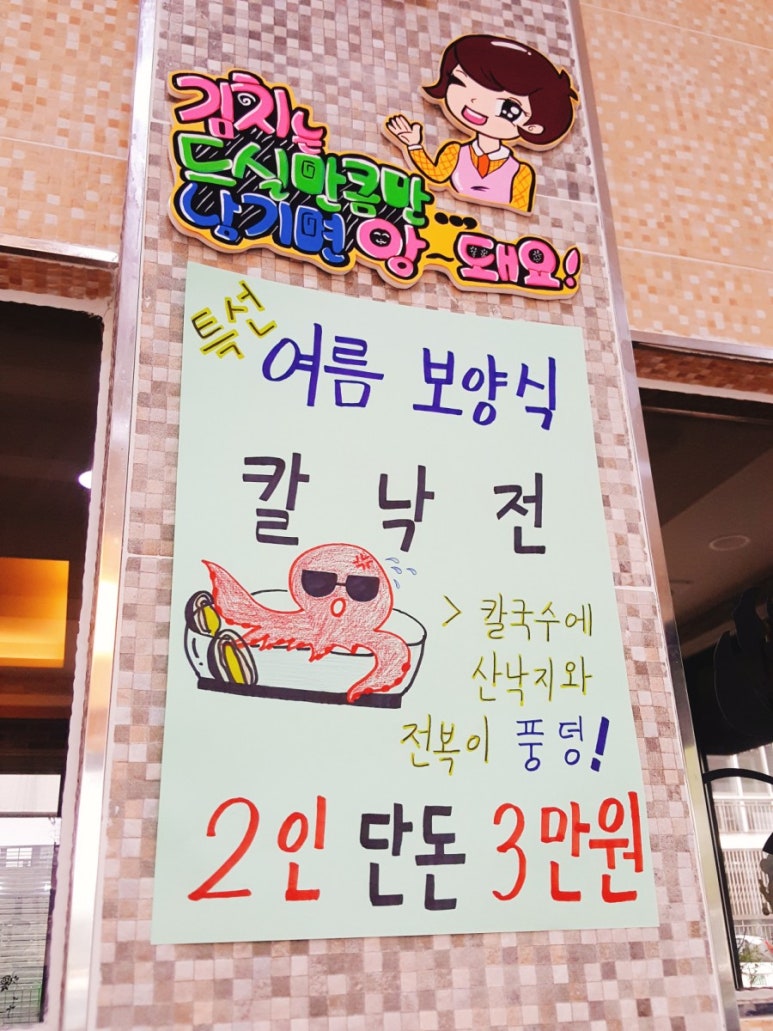 김치는
드실만큼만
남기면 앙...돼요!
특선
여름 보양식
칼 낙 전
> 칼국수에
산낙지와
전복이 풍덩!
2인 단돈 3만원